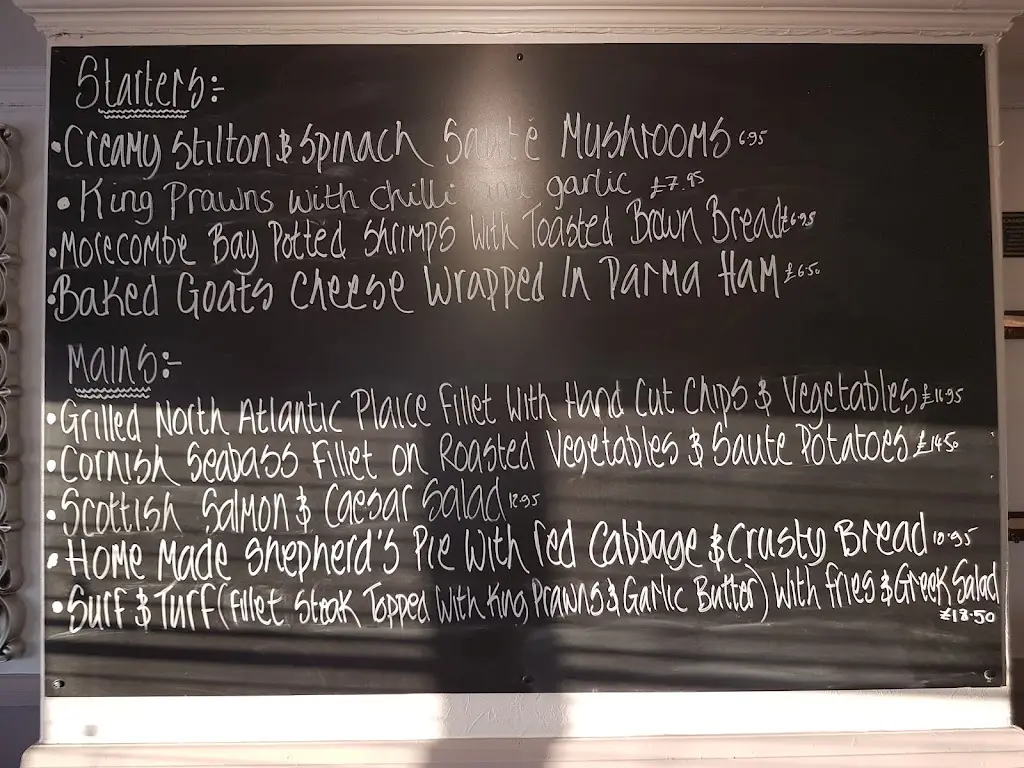 Starters:-
• Creamy Stilton & Spinach Sauté Mushrooms 6.95
• King Prawns with chilli and garlic £7.95
• Morecombe Bay Potted Shrimps With Toasted Brown Bread £6.95
• Baked Goats Cheese Wrapped In Parma Ham £6.50
Mains:-
• Grilled North Atlantic Plaice Fillet With Hand Cut Chips & Vegetables £11.95
• Cornish Seabass Fillet on Roasted Vegetables & Saute Potatoes £14.50
• Scottish Salmon & Caesar Salad 12.95
• Home Made Shepherd's Pie With red Cabbage & Crusty Bread 10.95
• Surf & Turf (Fillet Steak Topped With King Prawns & Garlic Butter) With fries & Greek Salad
£18.50